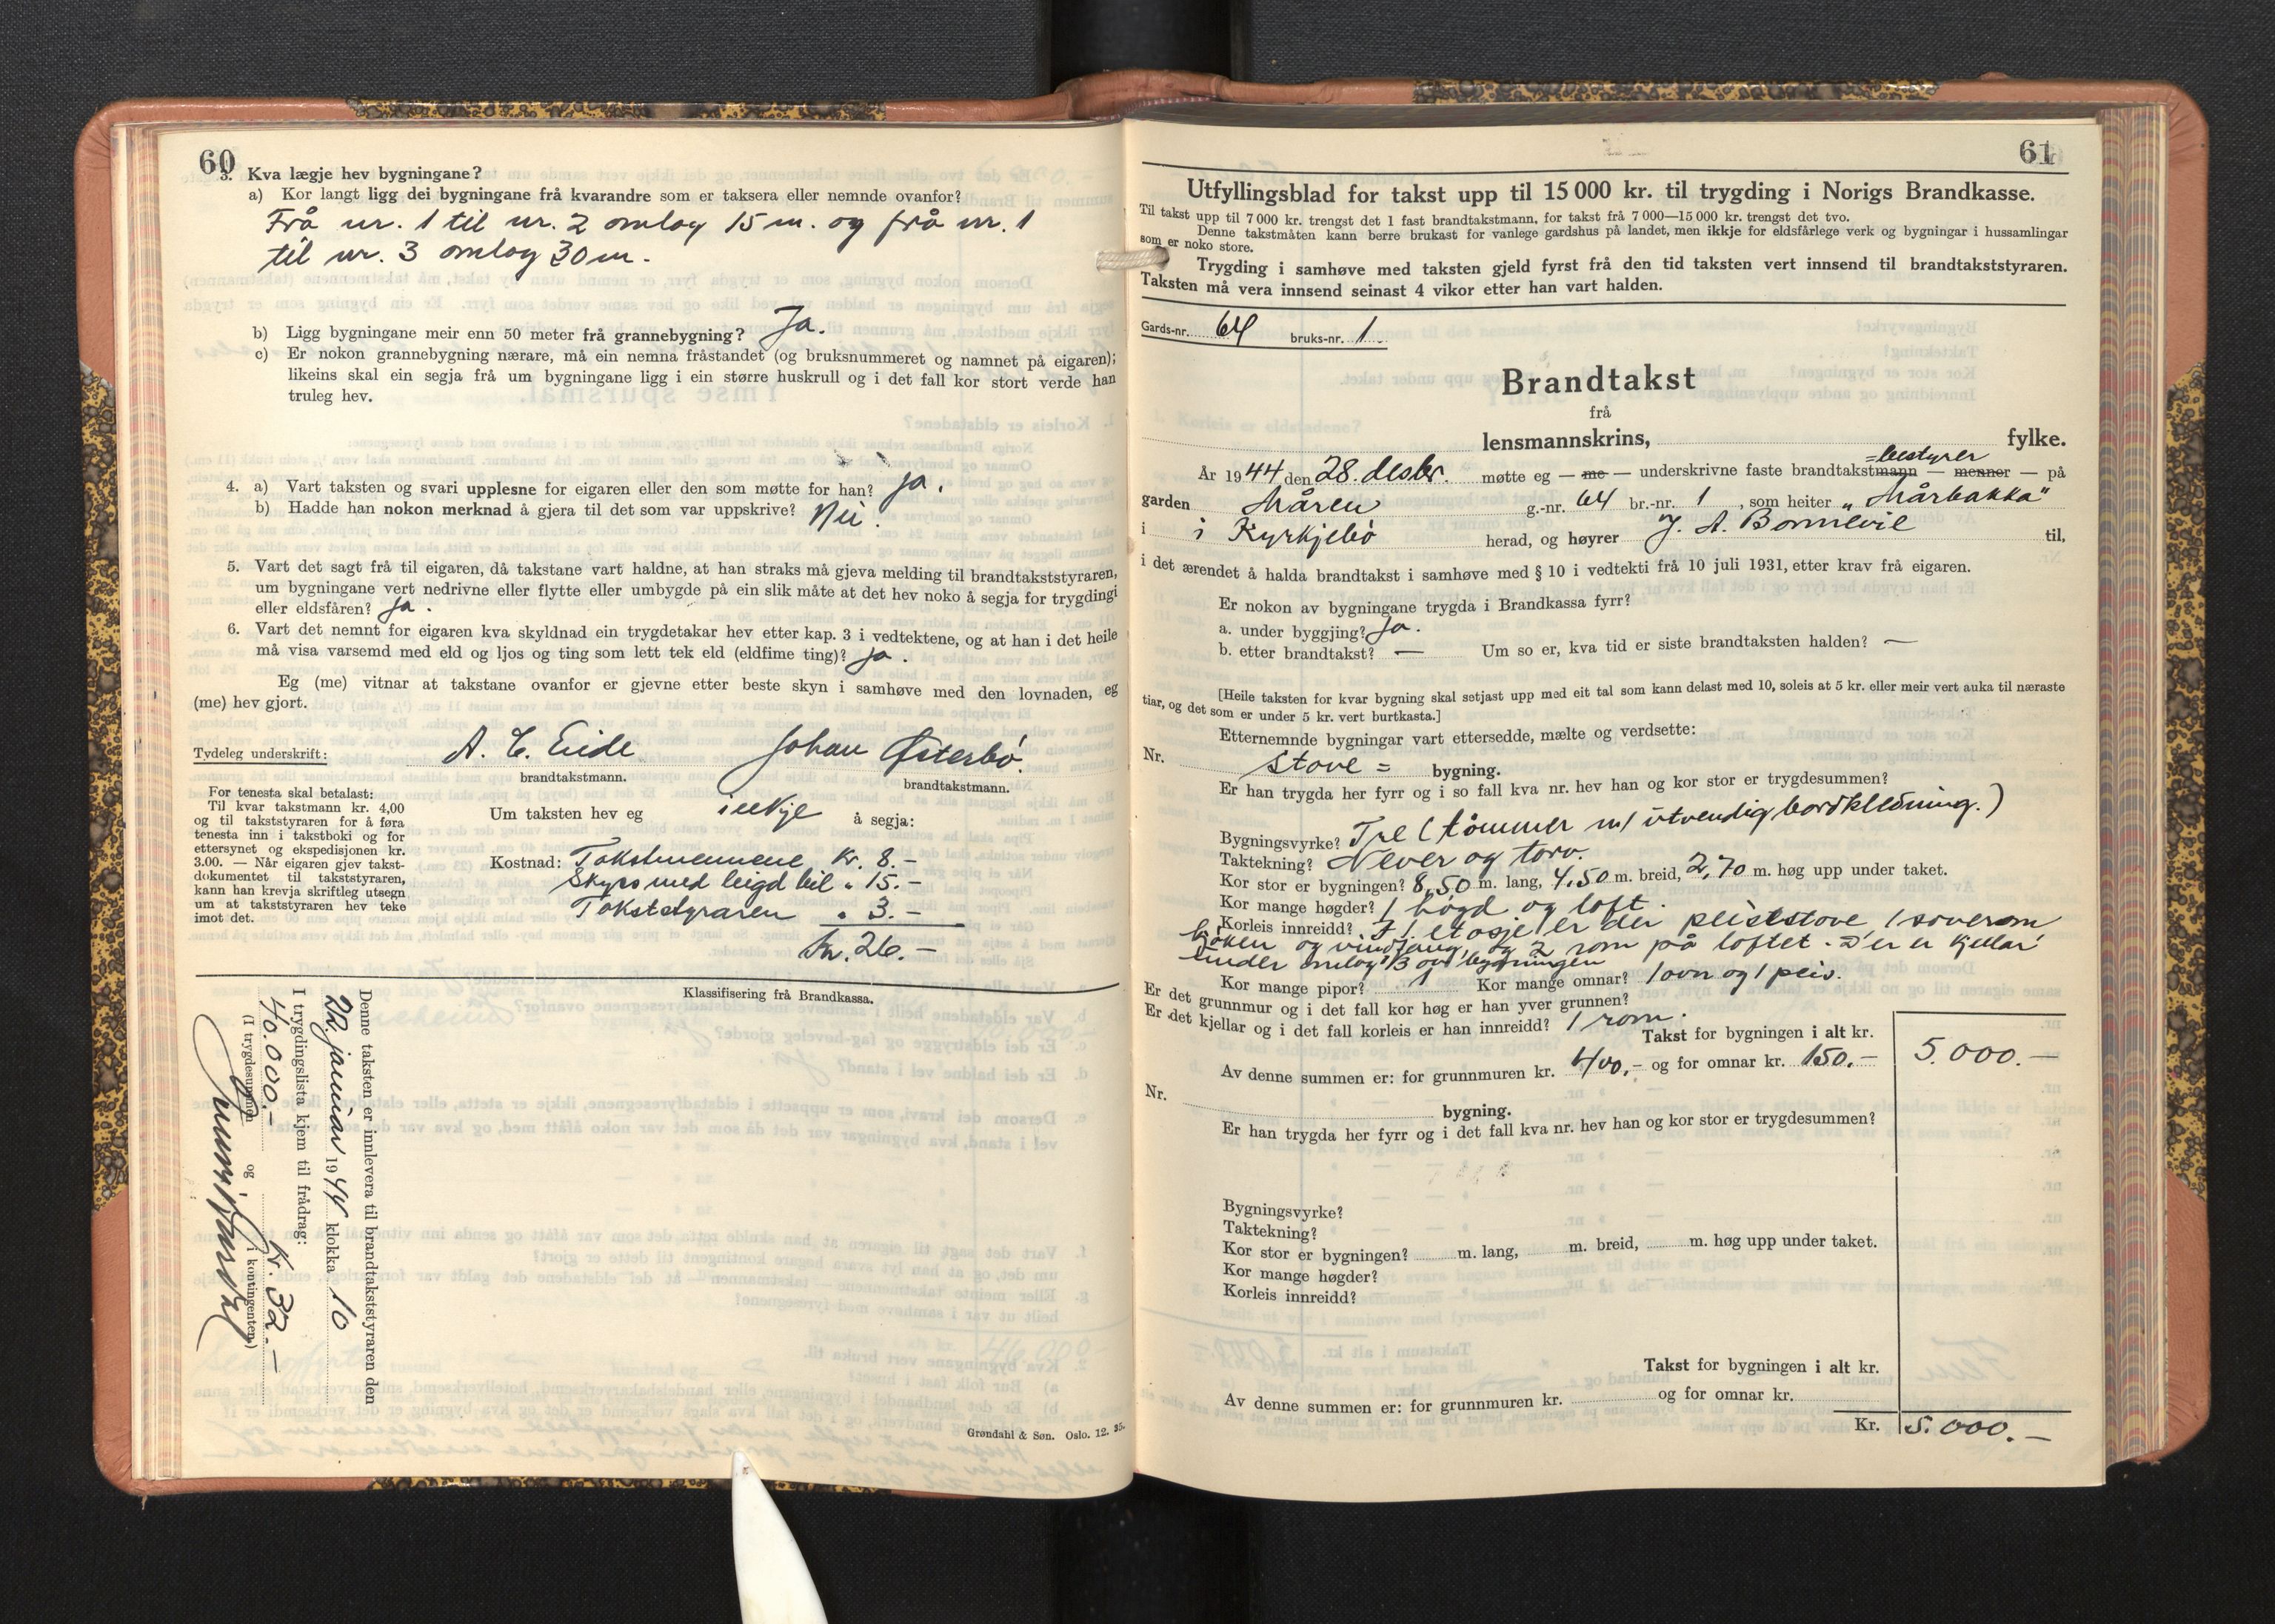 60
3. Kva lægje hev bygningane?
a) Kor langt ligg dei bygningane frå kvarandre som er taksera eller nemnde ovanfor?
Frå nr. 1 til nr. 2 omlag 15 m. og frå nr. 1
til nr. 3 omlag 30 m.
b) Ligg bygningane meir enn 50 meter frå grannebygning? Ja.
c) Er nokon grannebygning nærare, må ein nemna fråstandet (og bruksnummeret og namnet på eigaren);
likeins skal ein segja frå um bygningane ligg i ein større huskrull og i det fall kor stort verde han
truleg hev.
4. a) Vart taksten og svari upplesne for eigaren eller den som møtte for han? ja.
b) Hadde han nokon merknad å gjera til det som var uppskrive? Nei.
5. Vart det sagt frå til eigaren, då takstane vart haldne, at han straks må gjeva melding til brandtakststyraren,
um bygningane vert nedrivne eller flytte eller umbygde på ein slik måte at det hev noko å segja for trygdingi
eller eldsfåren? ja.
6. Vart det nemnt for eigaren kva skyldnad ein trygdetakar hev etter kap. 3 i vedtektene, og at han i det heile
må visa varsemd med eld og ljos og ting som lett tek eld (eldfime ting)? ja.
Eg (me) vitnar at takstane ovanfor er gjevne etter beste skyn i samhøve med den lovnaden, eg
(me) hev gjort.
Tydeleg underskrift: A. C. Eide Johan Østerbø.
brandtakstmann. brandtakstmann.
For tenesta skal betalast:
Til kvar takstmann kr. 4,00
og til takststyraren for å føra
tenesta inn i takstboki og for
ettersynet og ekspedisjonen kr.
3.00. — Når eigaren gjev takst-
dokumentet til takststyraren,
kann han krevja skriftleg utsegn
um at takststyraren hev teke
imot det.
Um taksten hev eg ikkje å segja:
Kostnad: Takstmennene kr. 8.-
Skyss med leigd bil " 15.-
Takststyraren " 3.-
kr. 26.-
Klassifisering frå Brandkassa.
Denne taksten er innlevera til brandtakststyraren den
22. januar 1944 klokka 10
I trygdingslista kjem til frådrag:
40.000.- og kr. 32.-
(I trygdesummen i kontingenten)
Grøndahl & Søn. Oslo. 12. 35.
61
Utfyllingsblad for takst upp til 15 000 kr. til trygding i Norigs Brandkasse.
Til takst upp til 7 000 kr. trengst det 1 fast brandtakstmann, for takst frå 7 000—15 000 kr. trengst det tvo.
Denne takstmåten kann berre brukast for vanlege gardshus på landet, men ikkje for eldsfårlege verk og bygningar i hussamlingar
som er noko store.
Trygding i samhøve med taksten gjeld fyrst frå den tid taksten vert innsend til brandtakststyraren.
Taksten må vera innsend seinast 4 vikor etter han vart halden.
Gards-nr. 64 bruks-nr. 1.
Brandtakst
frå
lensmannskrins, fylke.
=bestyrer
År 1944 den 28. desbr. møtte eg — me — underskrivne faste brandtakstmann — menner — på
garden Måren g.-nr. 64 br.-nr. 1, som heiter „Mårbakka"
i i Kyrkjebø herad, og høyrer J. A. Bonnevie til,
i det ærendet å halda brandtakst i samhøve med § 10 i vedtekti frå 10 juli 1931, etter krav frå eigaren.
Er nokon av bygningane trygda i Brandkassa fyrr?
a. under byggjing? Ja.
b. etter brandtakst? — Um so er, kva tid er siste brandtaksten halden? —
[Heile taksten for kvar bygning skal setjast upp med eit tal som kann delast med 10, soleis at 5 kr. eller meir vert auka til næraste
tiar, og det som er under 5 kr. vert burtkasta.]
Etternemnde bygningar vart ettersedde, mælte og verdsette:
Nr. Stove= bygning.
Er han trygda her fyrr og i so fall kva nr. hev han og kor stor er trygdesummen?
Bygningsvyrke? Tre (tømmer m/ utvendig bordkledning.)
Taktekning? Never og torv.
Kor stor er bygningen? 8,50 m. lang, 4.50 m. breid, 2,70 m. høg upp under taket.
Kor mange høgder? 1 høgd og loft.
Korleis innreidd? I 1 etasje er der peisestove 1 soverom
kjøken og vindfang, og 2 rom på loftet. Der er kjellar
under omlag 1/3 av bygningen
Kor mange pipor? 1 Kor mange omnar? 1 ovn og 1 peis.
Er det grunnmur og i det fall kor høg er han yver grunnen?
Er det kjellar og i det fall korleis er han innreidd? 1 rom.
Takst for bygningen i alt kr. 5.000.—
Av denne summen er: for grunnmuren kr. 400,- og for omnar kr. 150.—
Nr. bygning.
Er han trygda her fyrr og i det fall kva nr. hev han og kor stor er trygdesummen?
Bygningsvyrke?
Taktekning?
Kor stor er bygningen? m. lang, m. breid, m. høg upp under taket.
Kor mange høgder?
Korleis innreidd?
Takst for bygningen i alt kr.
Av denne summen er: for grunnmuren kr. og for omnar kr.
Kr. 5.000.—